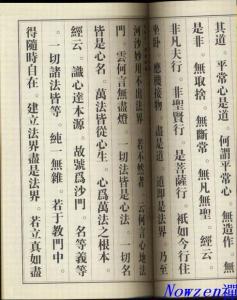 其道。平常心是道。何謂平常心。無造作。無
是非。無取捨。無斷常。無凡無聖。經云。
非凡夫行。非聖賢行。是菩薩行。衹如今行住
坐臥。應機接物。盡是道。道即是法界。乃至
河沙妙用。不出法界。若不然者。云何言心地法
門。云何言無盡燈。一切法皆是心法。一切名
皆是心名。萬法皆從心生。心爲萬法之根本。
經云。識心達本源。故號爲沙門。名等義等。
一切諸法皆等。純一無雜。若于教門中。
得隨時自在。建立法界盡是法界。若立真如盡
Nowzen禪